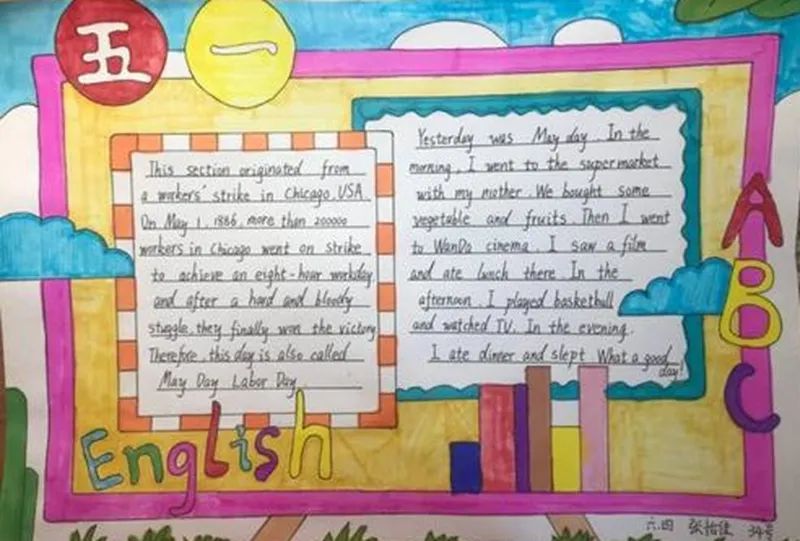 五一
This section originated from
a workers' strike in Chicago, USA.
On May 1, 1886, more than 200000
workers in Chicago went on strike
to achieve an eight-hour workday
and after a hard and bloody
stuggle, they finally won the victory
Therefore, this day is also called
May Day Labor Day.
Yesterday was May day. In the
morning, I went to the supermarket
with my mother. We bought some
vegetable and fruits. Then I went
to WanDa cinema. I saw a film
and ate lunch there. In the
afternoon. I played basketball
and watched TV. In the evening.
I ate dinner and slept. What a good
day!
A
B
C
English
六.四 张怡佳 34号